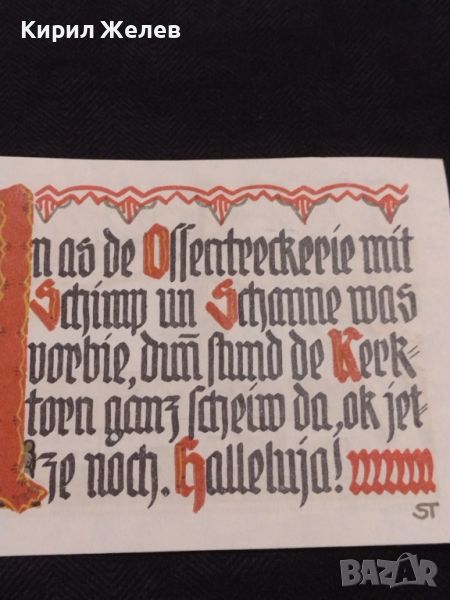 Кирил Желев
n as de Oſſentreckerie mit
Schimp un Schanne was
vorbie, dun̄ ſtund de Kerk=
torn ganz ſcheiw da, ok jet=
ze noch. Halleluja!
ST
BAZAR